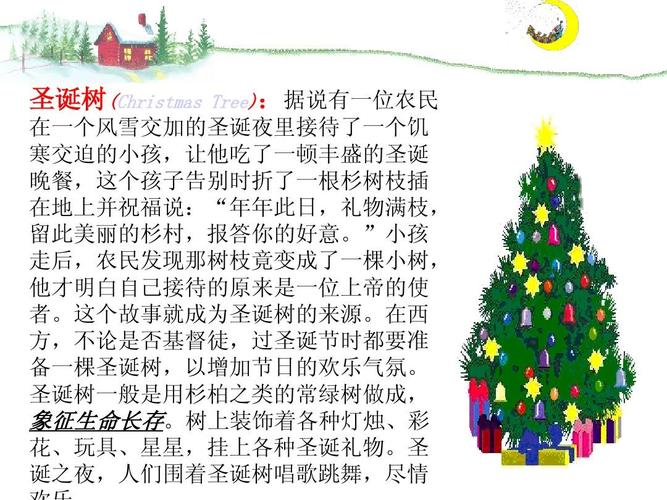 圣诞树(Christmas Tree)：据说有一位农民
在一个风雪交加的圣诞夜里接待了一个饥
寒交迫的小孩，让他吃了一顿丰盛的圣诞
晚餐，这个孩子告别时折了一根杉树枝插
在地上并祝福说：“年年此日，礼物满枝，
留此美丽的杉村，报答你的好意。”小孩
走后，农民发现那树枝竟变成了一棵小树，
他才明白自己接待的原来是一位上帝的使
者。这个故事就成为圣诞树的来源。在西
方，不论是否基督徒，过圣诞节时都要准
备一棵圣诞树，以增加节日的欢乐气氛。
圣诞树一般是用杉柏之类的常绿树做成，
象征生命长存。树上装饰着各种灯烛、彩
花、玩具、星星，挂上各种圣诞礼物。圣
诞之夜，人们围着圣诞树唱歌跳舞，尽情
欢乐